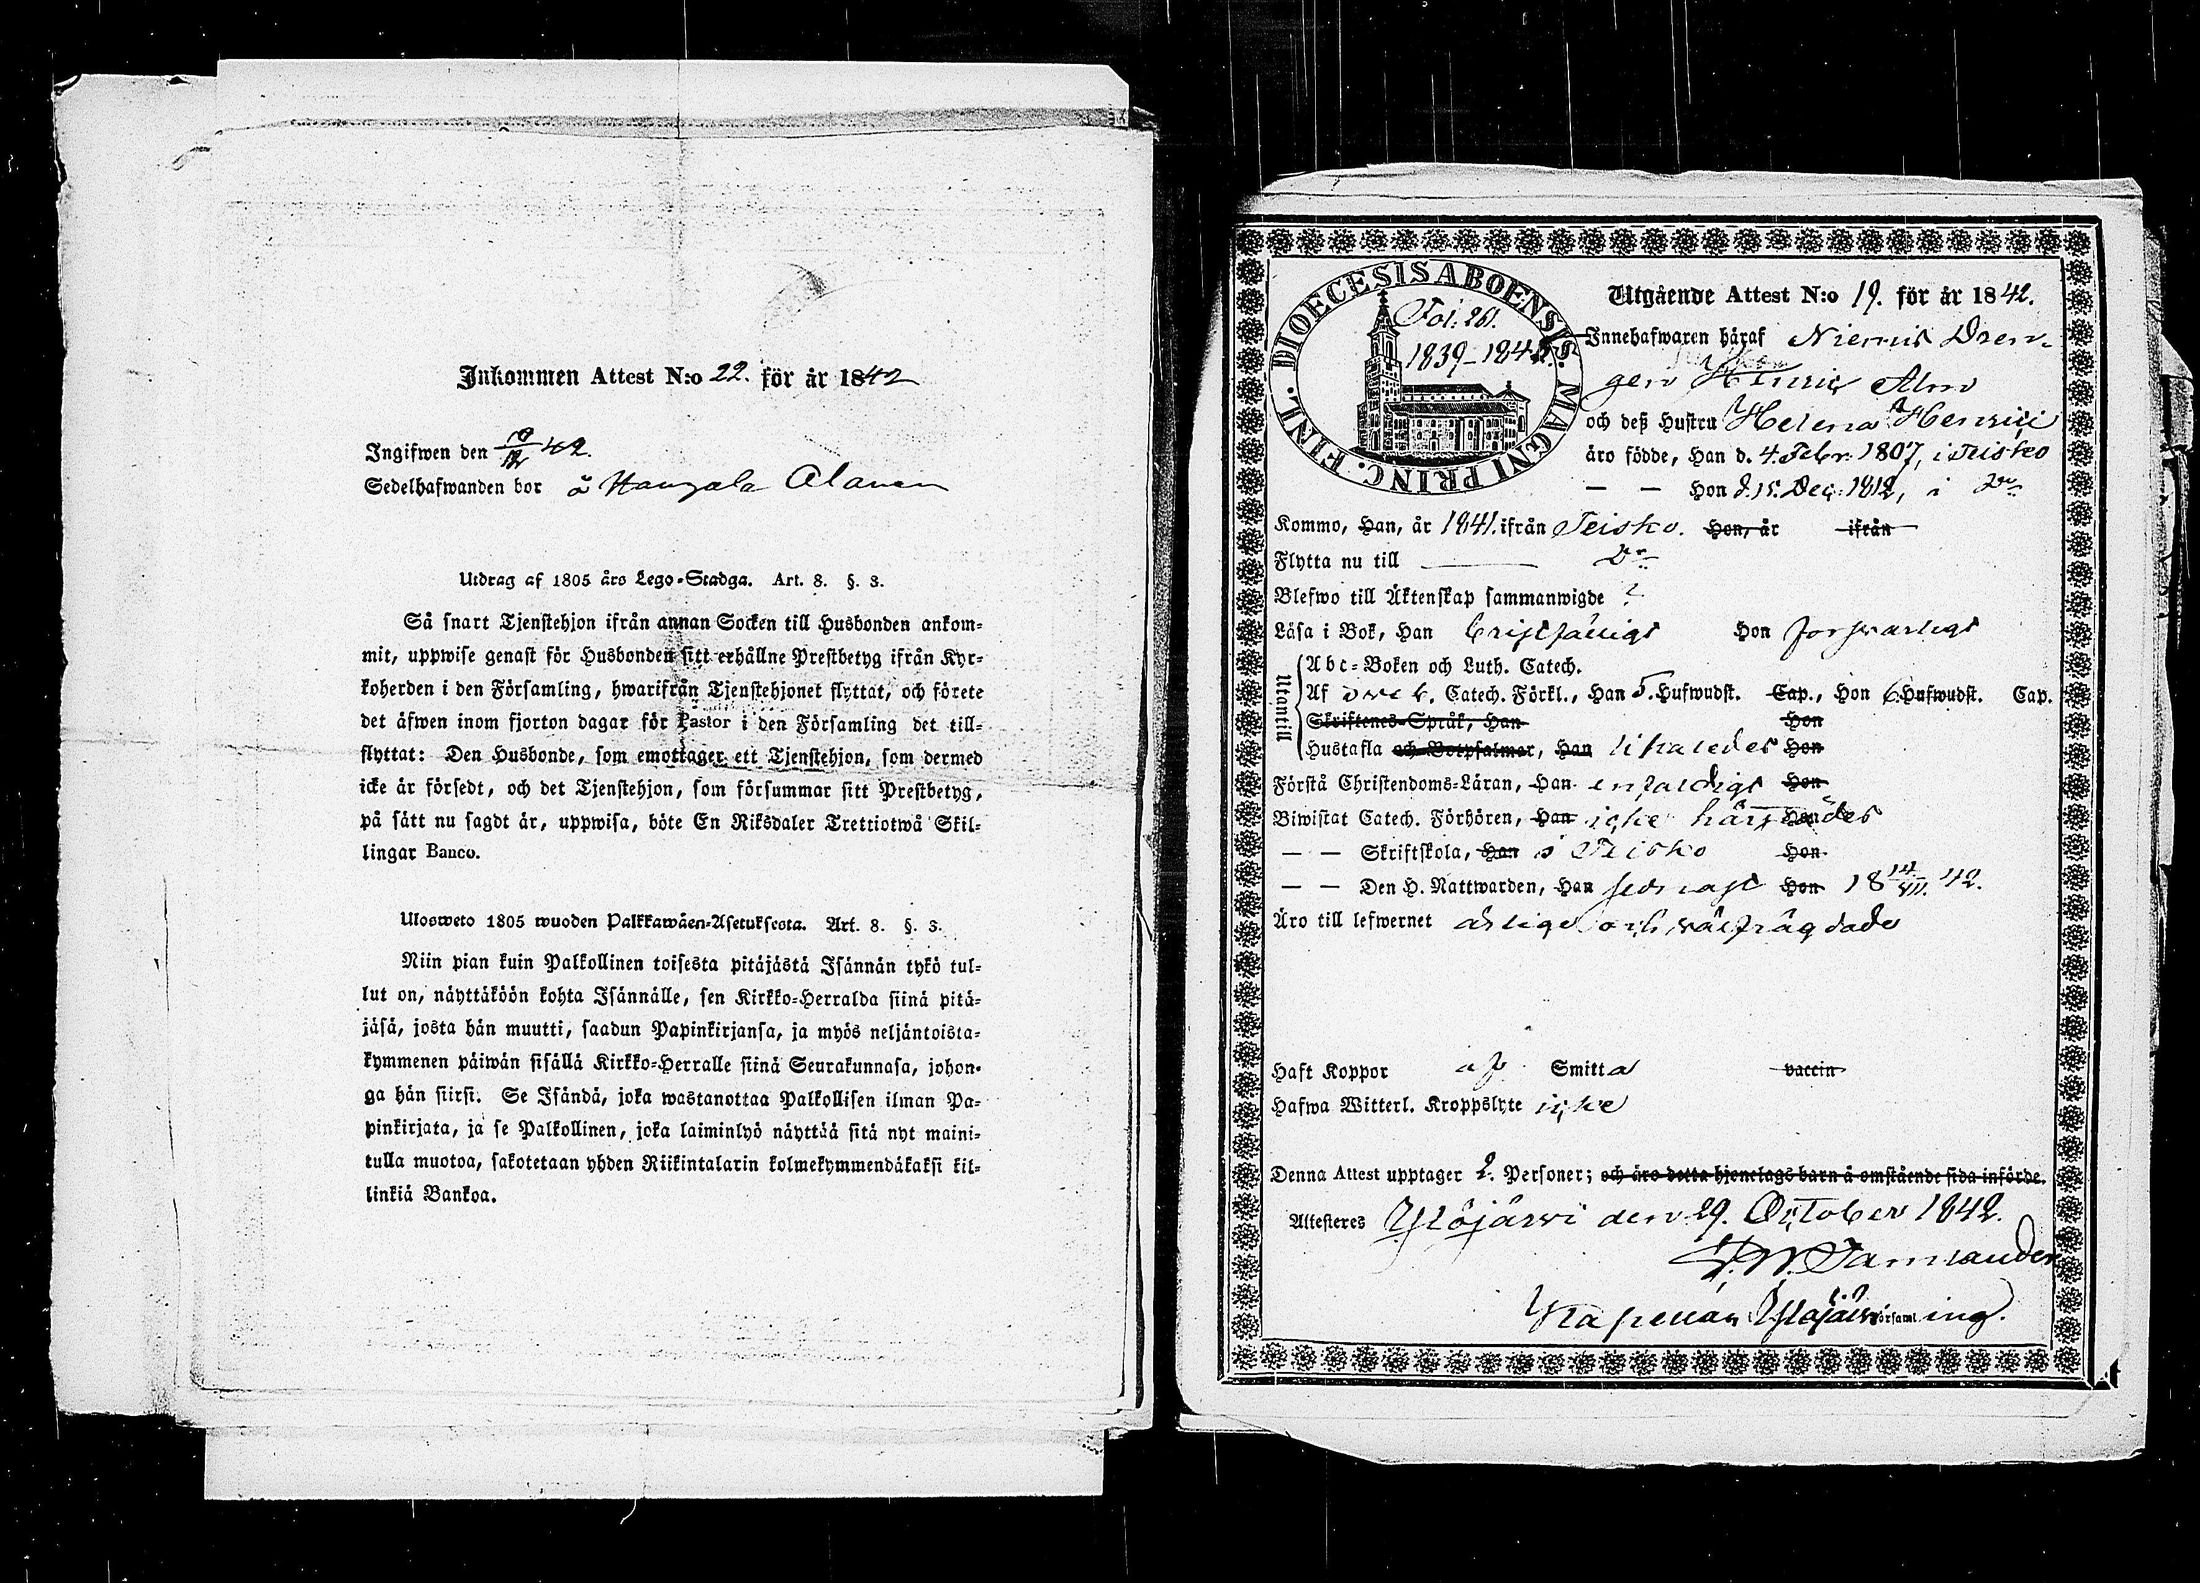 Inkommen Attest N:o 22. för år 1842
Ingifwen den 10/12 42.
Sedelhafwanden bor å Kangala Alanen
Utdrag af 1805 års Lego-Stadga. Art. 8. §. 3.
Så snart Tjenstehjon ifrån annan Socken till Husbonden ankom-
mit, uppwise genast för Husbonden sitt erhållne Prestbetyg ifrån Kyr-
koherden i den Församling, hwarifrån Tjenstehjonet flyttat, och förete
det äfwen inom fjorton dagar för Pastor i den Församling det till-
flyttat: Den Husbonde, som emottager ett Tjenstehjon, som dermed
icke är försedt, och det Tjenstehjon, som försummar sitt Prestbetyg,
på sätt nu sagdt är, uppwisa, böte En Riksdaler Trettiotwå Skil-
lingar Banco.
Ulosweto 1805 wuoden Palkkawäen-Asetuksesta. Art. 8. §. 3.
Niin pian kuin Palkollinen toisesta pitäjästä Isännän tykö tul-
lut on, näyttäköön kohta Isännälle, sen Kirkko-Herralda siinä pitä-
jäsä, josta hän muutti, saadun Papinkirjansa, ja myös neljäntoista-
kymmenen päiwän sisällä Kirkko-Herralle siinä Seurakunnasa, johon-
ga hän siirsi. Se Isändä, joka wastanottaa Palkollisen ilman Pa-
pinkirjata, ja se Palkollinen, joka laiminlyö näyttää sitä nyt maini-
tulla muotoa, sakotetaan yhden Riikintalarin kolmekymmendäkaksi kil-
linkiä Bankoa.
DIOECESIS ABOENSIS. MAGNI PRINC. FINL.
Fol. 261.
1839-1845.
Utgående Attest N:o 19. för år 1842.
Innehafwaren häraf Niemis Dren-
gen Henric Alm
och deß Hustru Helena Henrici
äro födde, Han d. 4. Febr. 1807, i Teisko
— — Hon d. 15. Dec. 1812, i Do
Kommo, Han, år 1841. ifrån Teisko. Hon, år ifrån
Flytta nu till Do
Blefwo till Äktenskap sammanwigde ?
Läsa i Bok, Han bristfälligt Hon förswarligt
Utantill
Abc-Boken och Luth. Catech.
Af Catech. Förkl., Han 5. Hufwudst. Cap., Hon 6. Hufwudst. Cap.
Skriftenes-Språk, Han Hon
Hustafla och Botpsalmer, Han likaledes Hon
Förstå Christendoms-Läran, Han enfaldigt Hon
Biwistat Catech. Förhören, Han icke härstädes Hon
— — Skriftskola, Han i Teisko Hon
— — Den H. Nattwarden, Han sednast Hon 18 42.
Äro till lefwernet ärlige och wälfrägdade
Haft Koppor af Smitta vaccin
Hafwa Witterl. Kroppslyte icke
Denna Attest upptager 2. Personer; och äro detta hjonelags barn å omstående sida införde.
Attesteres Ylöjärvi den 29. October 1842.
Tamlander
Kapellan Ylöjärvi församling.